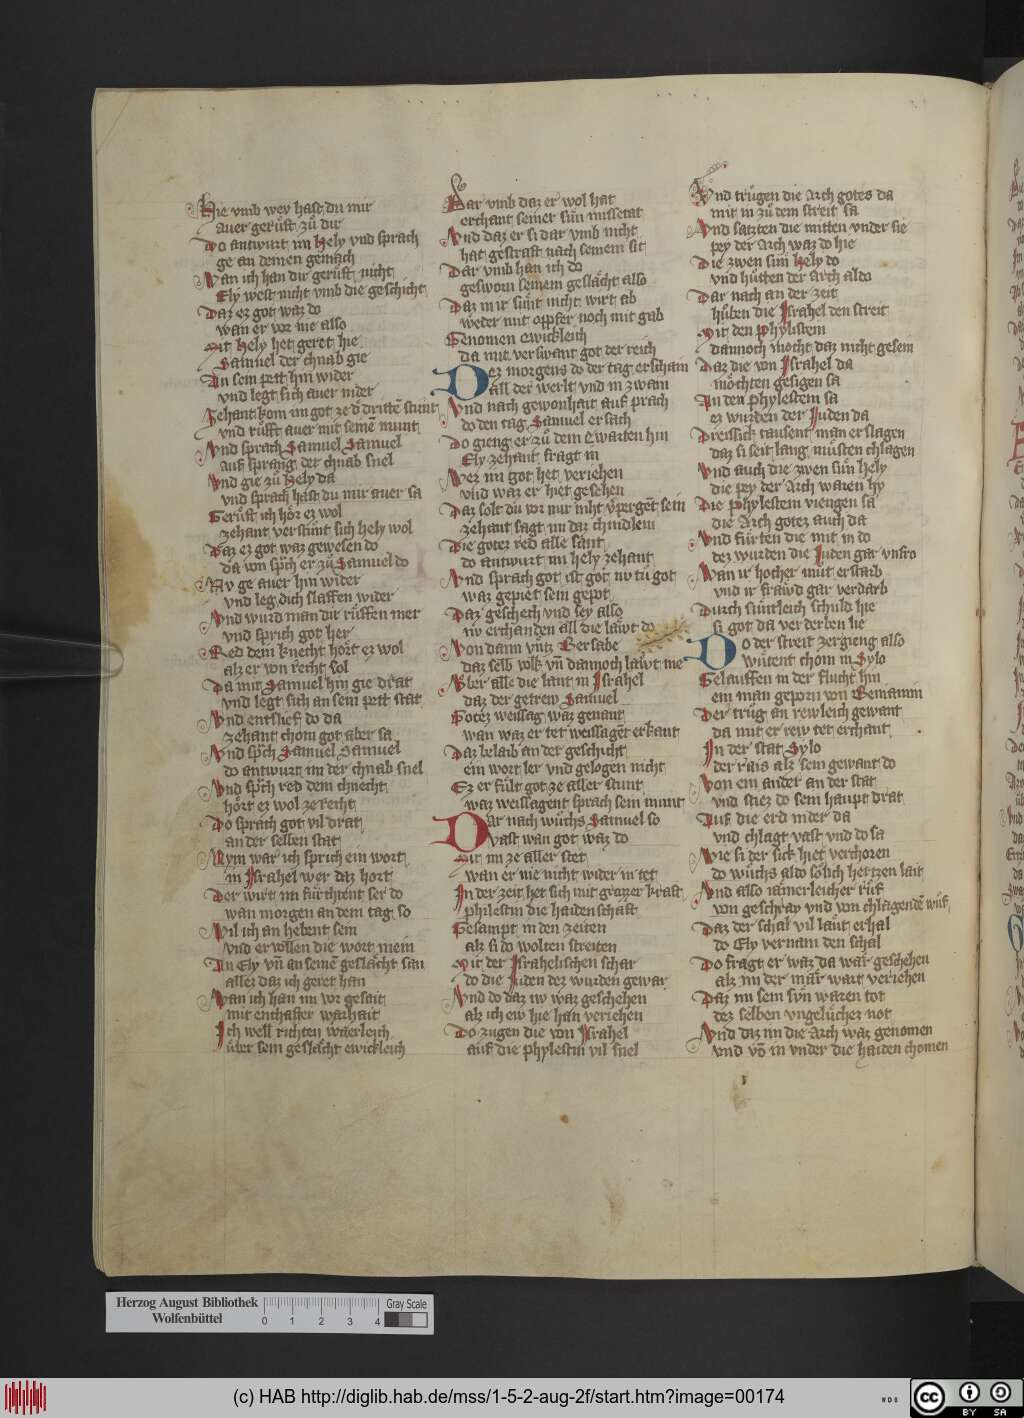 Hie vmb wey hast du mir
auer gerůft zů dir
Do antwurt im Hely vnd sprach
ge an deinen gemach
Wan ich han dir gerůft nicht
Ely west nicht vmb die geschicht
Daz ez got waz do
wan er vor nie also
Mit Hely het geret hie
Samuel der chnab gie
An sein pett hin wider
vnd legt sich auer nider
Zehant kom im got ze dritte stunt
vnd růfft auer mit seinē munt
Vnd sprach Samuel Samuel
auf sprang der chnab snel
Vnd gie zů Hely da
vnd sprach hast du mir auer sa
Gerůft ich hör ez wol
zehant verstůnt sich hely wol
Daz ez got waz gewesen do
da von spͣch er zů Samuel do
Nv ge auer hin wider
vnd leg dich slaffen wider
Vnd wurd man dir růffen mer
vnd sprich got her
Red dem knecht hort ez wol
alz er von recht sol
Da mit Samuel hin gie drat
vnd legt sich an sein pett stat
Vnd entslief do da
zehant chom got aber sa
Vnd spͣch Samuel Samuel
do antwurt im der chnab snel
Vnd spͣch red dem chnecht
hört ez wol ze recht
Do sprach got vil drat
an der selben stat
Nym war ich sprich ein wort
in Israhel wer daz hort
Der wirt im fürchtent ser do
wan morgen an dem tag so
Wil ich an hebent sein
vnd erwllen die wort mein
An Ely vn̄ an seinē geslächt san
allez daz ich geret han
Wan ich han im vor gesait
mit enthafter warhait
Ich well richten waerleich
über sein geslächt ewickleich
Dar vmb daz er wol hat
erchant seiner sün missetat
Vnd daz er si dar vmb nicht
hat gestraft nach seinem sit
Dar vmb han ich do
gesworn seinem geslächt also
Daz in ir sünt nicht wirt ab
weder mit oppfer noch mit gab
Genomen ewickleich
da mit verswant got der reich
Dez morgens do der tag erscham
all der werlt vnd in zwam
Vnd nach gewonhait auf prach
do den tag Samuel ersach
Do gieng er zů dem Ewarten hin
Ely zehant fragt in
Wez im got het veriehen
vnd waz er hiet gesehen
Daz solt du vor mir niht v̈pergēt sein
zehant sagt im daz chindlein
Die gotez red alle sant
do antwurt im hely zehant
Vnd sprach got ist got nv tů got
waz gepiet sein gepot
Daz geschech vnd sey also
nv erchanden all die läwt do
Von dann vntz Bersabe
daz selb volk vn̄ dannoch läwt me
Vber alle die lant in Israhel
daz der getrew Samuel
Gotez weissag waz genant
wan waz er tet weissagēt erkant
Daz belaib an der geschicht
ein wort ler vnd gelogen nicht
Ez er füllt got ze aller stunt
waz weissagent sprach sein munt
Dar nach wůchs Samuel so
vast wan got waz do
Mit im ze aller stet
wan er nie nicht wider in tet
In der zeit het sich mit grozzer kraft
philestin die haidenschaft
Gesampt in den zeiten
alz si do wolten streiten
Mit der Israhelischen schar
do die Juden dez wurden gewar
Vnd do daz nv waz geschehen
alz ich ew hie han veriehen
Do zugen die von Israhel
auf die phylestin vil snel
Vnd trůgen die Arch gotes da
mit in zů dem streit sa
Vnd satzten die mitten vnder sie
pey der Arch waz do hie
Die zwen sün Hely do
vnd hůtten der Arch aldo
Dar nach an der zeit
hůben die Israhel den streit
Mit den Phylistein
dannoch mocht daz nicht gesein
Daz die von Israhel da
möchten gesigen sa
An den phylestein sa
ez wurden der Juden da
Dreissick tausent man erslagen
daz si seit lang můsten chlagen
Vnd auch die zwen sün hely
die pey der Arch waren hy
Die phylestein viengen sa
die Arch gotez auch da
Vnd fürten die mit in do
dez wurden die Juden gar vnfro
Wan ir hocher můt erstarb
vnd ir fräwd gar verdarb
Durch süntleich schuld hie
si got da verderben lie
Do der streit zergieng also
wůtent chom in Sylo
Gelauffen in der flucht hin
ein man geporn von Beniamin
Der trůg an rewleich gewant
da mit er rew tet erchant
In der stat Sylo
der rais alz sein gewant do
Von ein ander an der stat
vnd stiez do sein haupt drat
Auf die erd nider da
vnd chlagt vast vnd do sa
Wie si der sick hiet verchoren
do wůchs aldo sölich hertzen lait
Vnd also iamerleicher růf
von geschray vnd von chlagendē wůf
Daz der schal vil läut erhal
do Ely vernam den schal
Do fragt er waz da wär geschehen
alz im der mär wart veriehen
Daz im sein sün waren tot
dez selben vngelüchez not
Vnd daz im die Arch waz genomen
vnd vō in vnder die haiden chomen
Herzog August Bibliothek
Wolfenbüttel
0 1 2 3 4
Gray Scale
(c) HAB http://diglib.hab.de/mss/1-5-2-aug-2f/start.htm?image=00174
WDB
cc BY SA